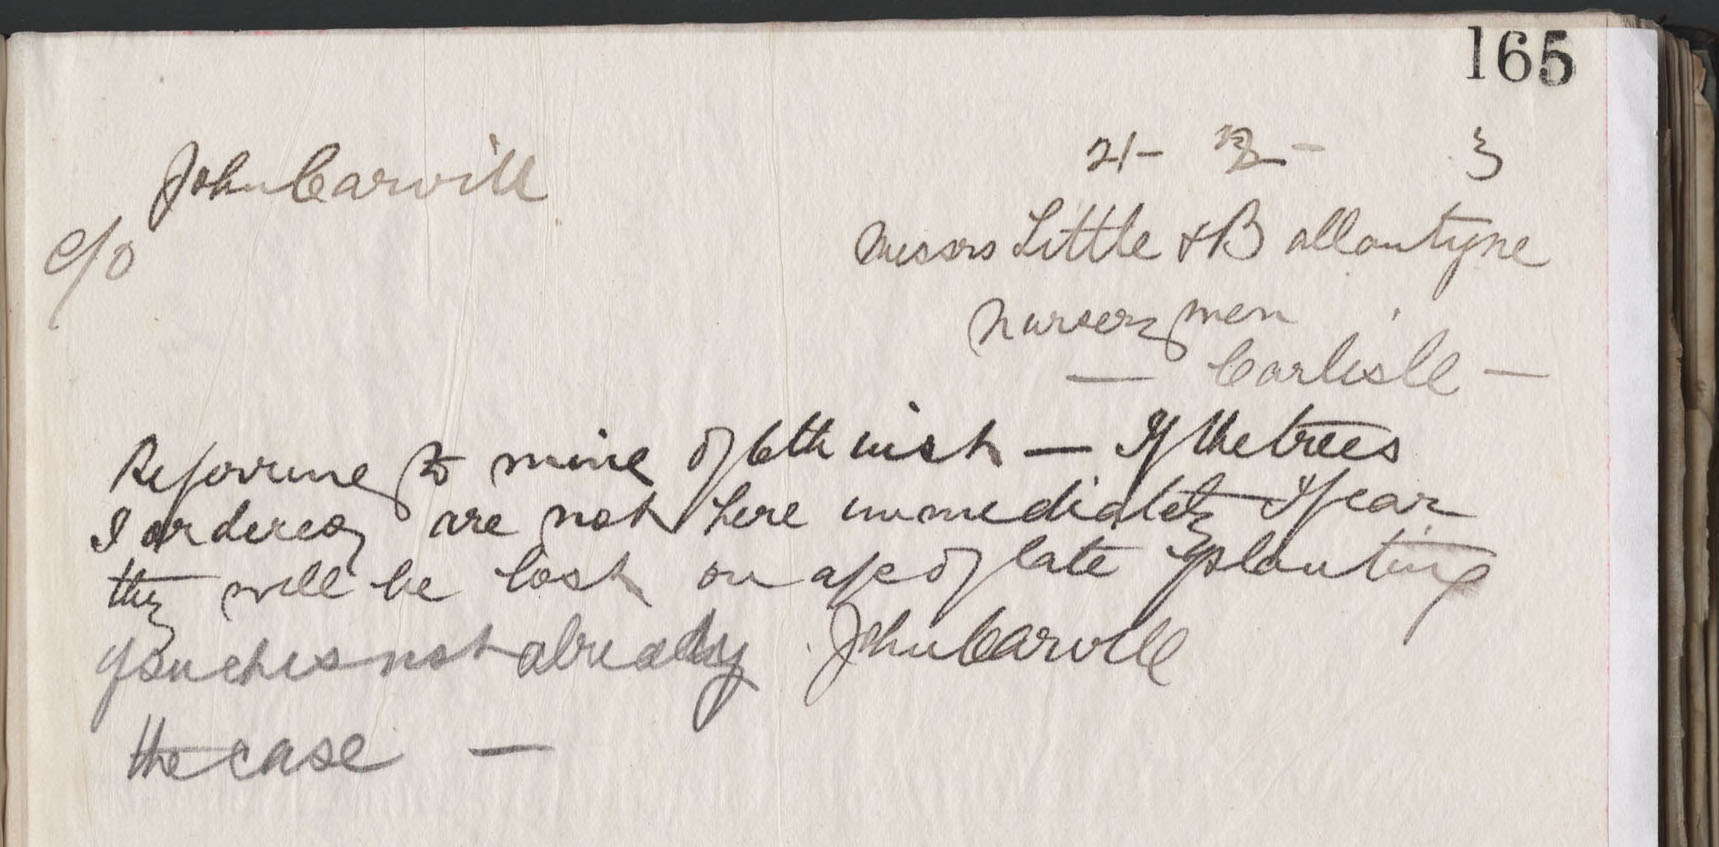 165
John Carvill
21- 12- 3
c/o
Messrs Little & Ballantyne
Nurserymen
— Carlisle —
Referring to mine of 6th inst — If the trees
I ordered are not here immediately I fear
they will be lost on a/c of late planting
if such is not already John Carvill
the case —